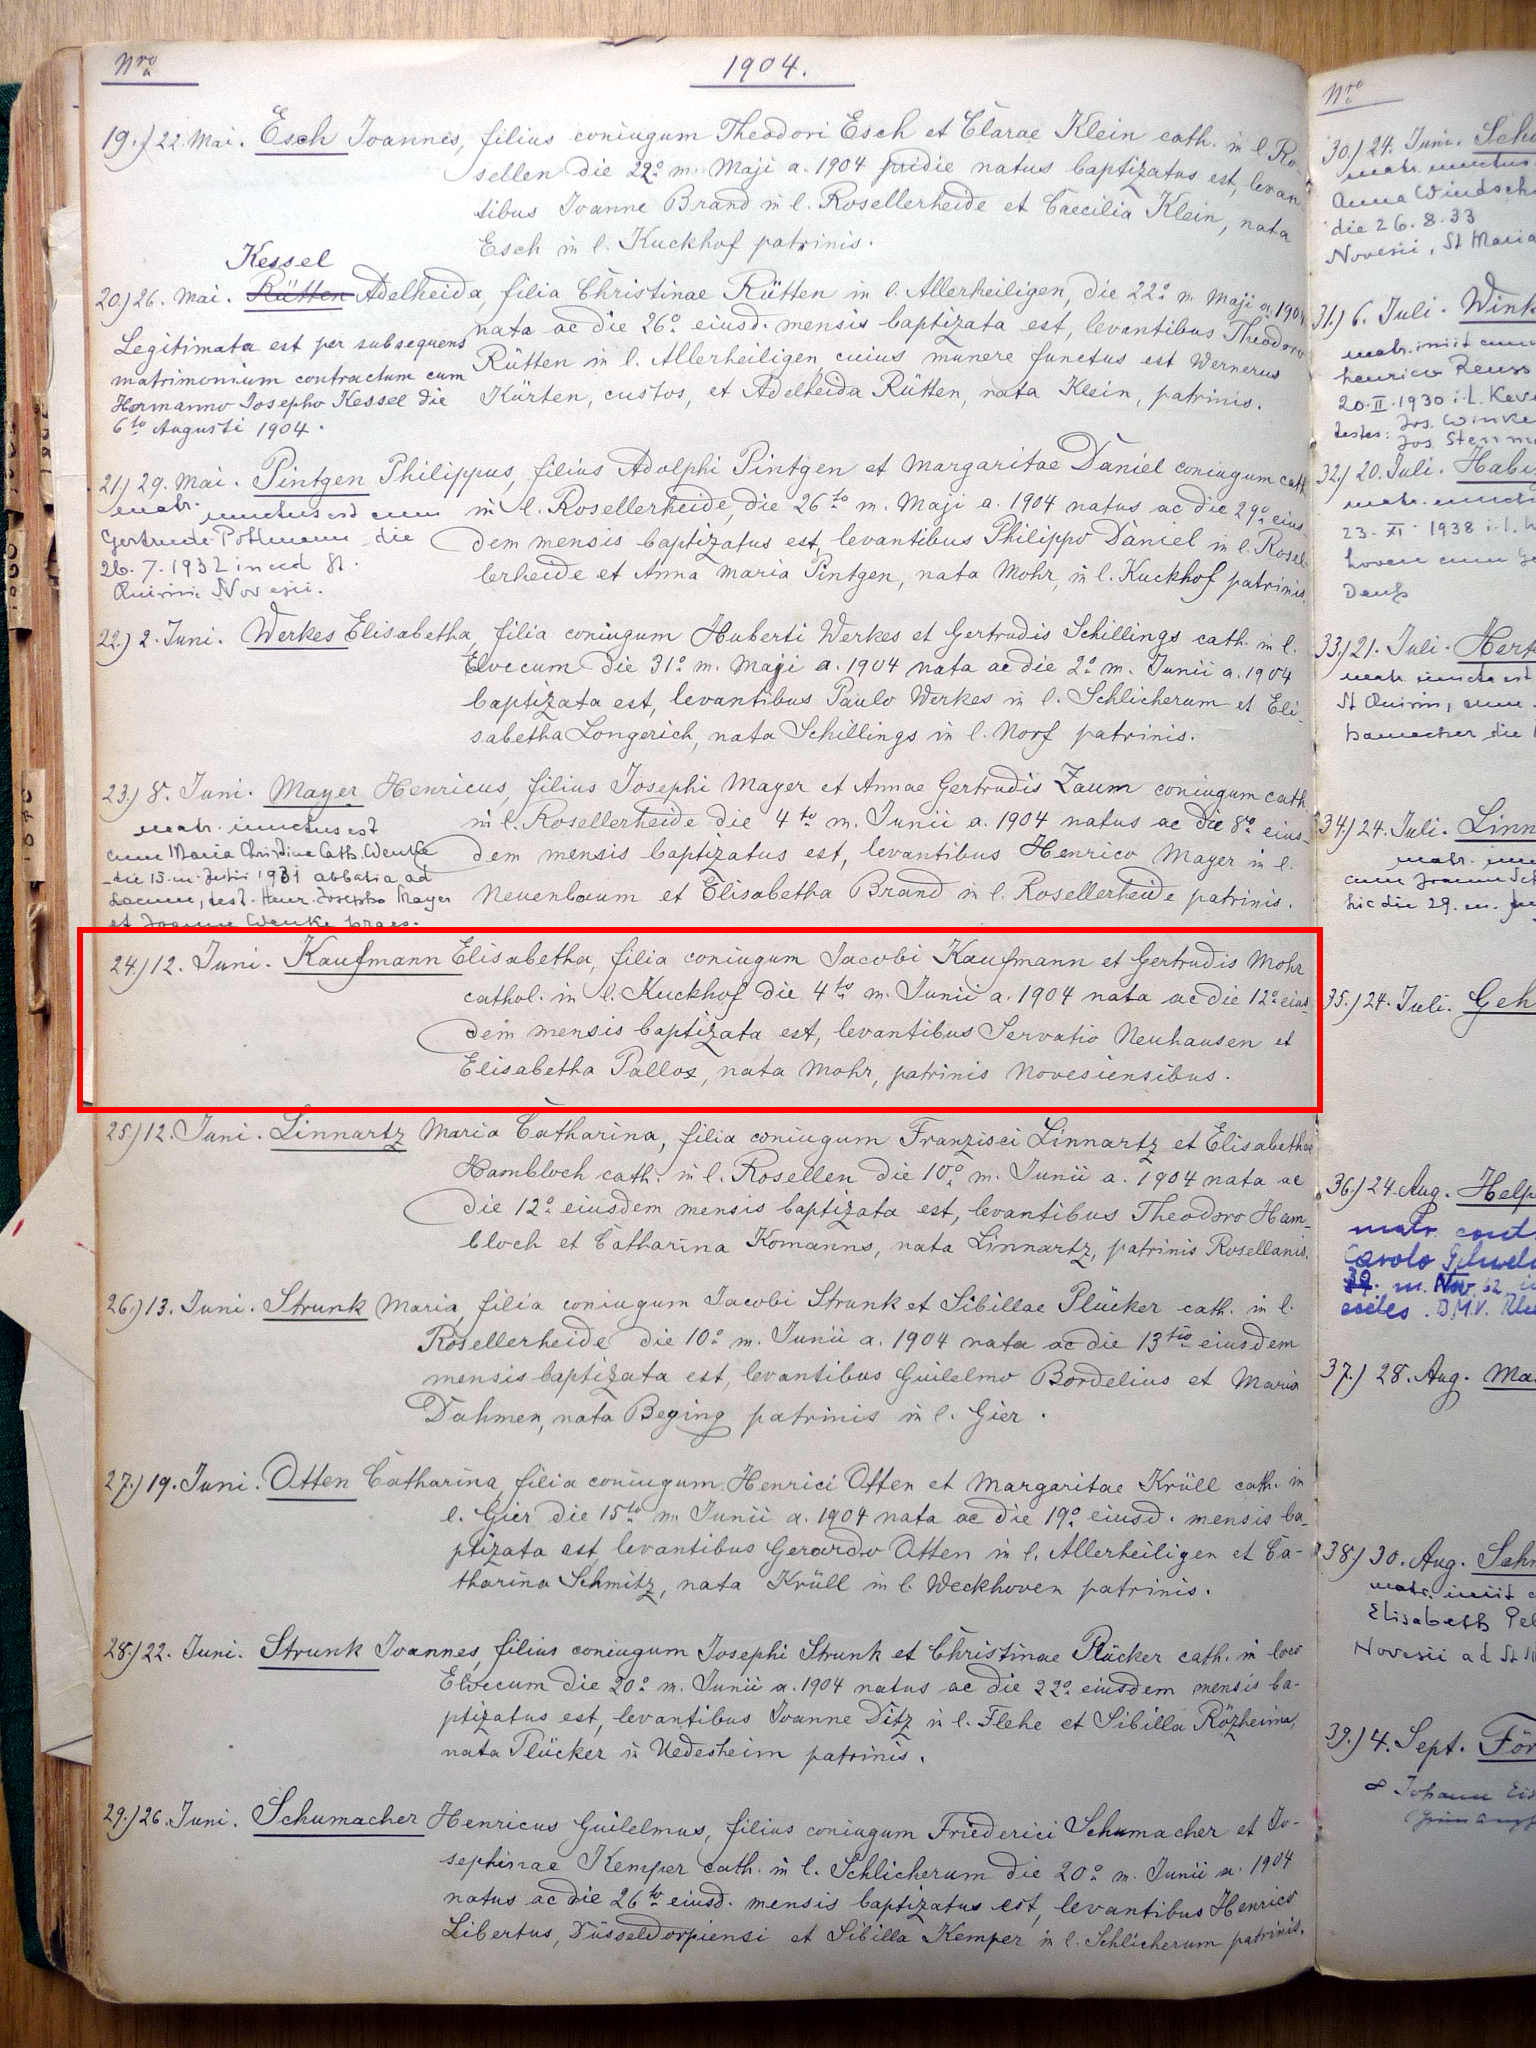 Nro
1904.
19.) 22. Mai. Esch Joannes, filius coniugum Theodori Esch et Clarae Klein cath. in l. Ro-
sellen die 22o m. Maji a. 1904 pridie natus baptizatus est, levan-
tibus Joanne Brand in l. Rosellerheide et Caecilia Klein, nata
Esch in l. Kuckhof patrinis.
Kessel
20.) 26. Mai. Rütten Adelheida, filia Christinae Rütten in l. Allerheiligen, die 22o m. Maji a. 1904
nata ac die 26o eiusd. mensis baptizata est, levantibus Theodoro
Rütten in l. Allerheiligen cuius munere functus est Wernerus
Kürten, custos, et Adelheida Rütten, nata Klein, patrinis.
Legitimata est per subsequens
matrimonium contractum cum
Hermanno Josepho Kessel die
6to Augusti 1904.
21.) 29. Mai. Pintgen Philippus, filius Adolphi Pintgen et Margaritae Daniel coniugum cath.
in l. Rosellerheide, die 26to m. Maji a. 1904 natus ac die 29o eius-
dem mensis baptizatus est, levantibus Philippo Daniel in l. Rosel-
lerheide et Anna Maria Pintgen, nata Mohr, in l. Kuckhof patrinis.
matr. iunctus est cum
Gertrude Pollmann die
26.7.1932 in eccl St.
Quirini Novesii.
22.) 2. Juni. Werkes Elisabetha, filia coniugum Huberti Werkes et Gertrudis Schillings cath. in l.
Elvecum die 31o m. Maji a. 1904 nata ac die 2o m. Junii a. 1904
baptizata est, levantibus Paulo Werkes in l. Schlicherum et Eli-
sabetha Longerich, nata Schillings in l. Norf patrinis.
23.) 8. Juni. Mayer Henricus, filius Josephi Mayer et Annae Gertrudis Zaum coniugum cath.
in l. Rosellerheide die 4to m. Junii a. 1904 natus ac die 8o eius-
dem mensis baptizatus est, levantibus Henrico Mayer in l.
Neuenbaum et Elisabetha Brand in l. Rosellerheide patrinis.
matr. iunctus est
cum Maria Christine Cath. Wenke
die 15. m. Julii 1931 abbatia ad
Lacum, test. Henr. Josepho Mayer
et Joanne Wenke praes.
24.) 12. Juni. Kaufmann Elisabetha, filia coniugum Jacobi Kaufmann et Gertrudis Mohr
cathol. in l. Kuckhof die 4to m. Junii a. 1904 nata ac die 12o eius-
dem mensis baptizata est, levantibus Servatio Neuhausen et
Elisabetha Pallox, nata Mohr, patrinis Novesiensibus.
25.) 12. Juni. Linnartz Maria Catharina, filia coniugum Franzisci Linnartz et Elisabethae
Hambloch cath. in l. Rosellen die 10o m. Junii a. 1904 nata ac
die 12o eiusdem mensis baptizata est, levantibus Theodoro Ham-
bloch et Catharina Komanns, nata Linnartz, patrinis Rosellanis.
26.) 13. Juni. Strunk Maria, filia coniugum Jacobi Strunk et Sibillae Plücker cath. in l.
Rosellerheide die 10o m. Junii a. 1904 nata ac die 13tio eiusdem
mensis baptizata est, levantibus Guilelmo Bordelius et Maria
Dahmen, nata Beging patrinis in l. Gier.
27.) 19. Juni. Otten Catharina, filia coniugum Henrici Otten et Margaritae Krüll cath. in
l. Gier die 15to m. Junii a. 1904 nata ac die 19o eiusd. mensis ba-
ptizata est, levantibus Gerardo Otten in l. Allerheiligen et Ca-
tharina Schmitz, nata Krüll in l. Weckhoven patrinis.
28.) 22. Juni. Strunk Joannes, filius coniugum Josephi Strunk et Christinae Plücker cath. in loco
Elvecum die 20o m. Junii a. 1904 natus ac die 22o eiusdem mensis ba-
ptizatus est, levantibus Joanne Ditz in l. Flehe et Sibilla Rözheim,
nata Plücker in Uedesheim patrinis.
29.) 26. Juni. Schumacher Henricus Guilelmus, filius coniugum Friederici Schumacher et Jo-
sephinae Kemper cath. in l. Schlicherum die 20o m. Junii a. 1904
natus ac die 26to eiusd. mensis baptizatus est, levantibus Henrico
Libertus, Düsseldorpiensi et Sibilla Kemper in l. Schlicherum patrinis.
Nro
30.) 24. Juni.
matr. iunctus
Anna
die 26.8.33
Novesii, St Maria
31.) 6. Juli. Wink
matr. iniit cum
henrico Reuss
20.II.1930 i.l. Keve
testes: Jos. Winke
Jos. Stenm
32.) 20. Juli.
matr. iuncti
23. XI. 1938 i.l.
hoven cum
33.) 21. Juli.
matr. iuncta est
St Quirin, cum
hamacher die
34.) 24. Juli. Linn
cum Joanne
hic die 29. m.
35.) 24. Juli. Geh
36.) 24. Aug. Help
matr. cont
Carolo
m. Nov. 62
eccles. B.M.V.
37.) 28. Aug. Ma
38.) 30. Aug.
matr. iniit
Elisabeth
Novesii ad St
39.) 4. Sept. För
∞ Johann